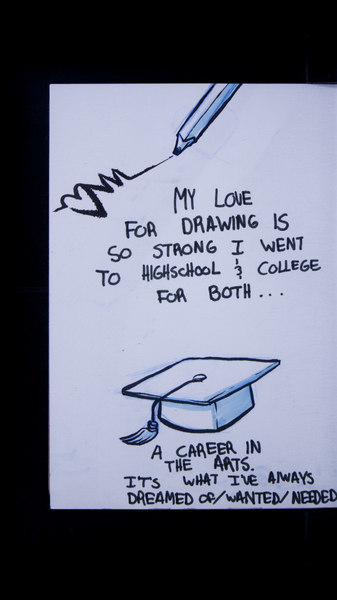 MY LOVE
FOR DRAWING IS
SO STRONG I WENT
TO HIGHSCHOOL & COLLEGE
FOR BOTH...
A CAREER IN
THE ARTS.
IT'S WHAT I'VE ALWAYS
DREAMED OF/WANTED/NEEDED